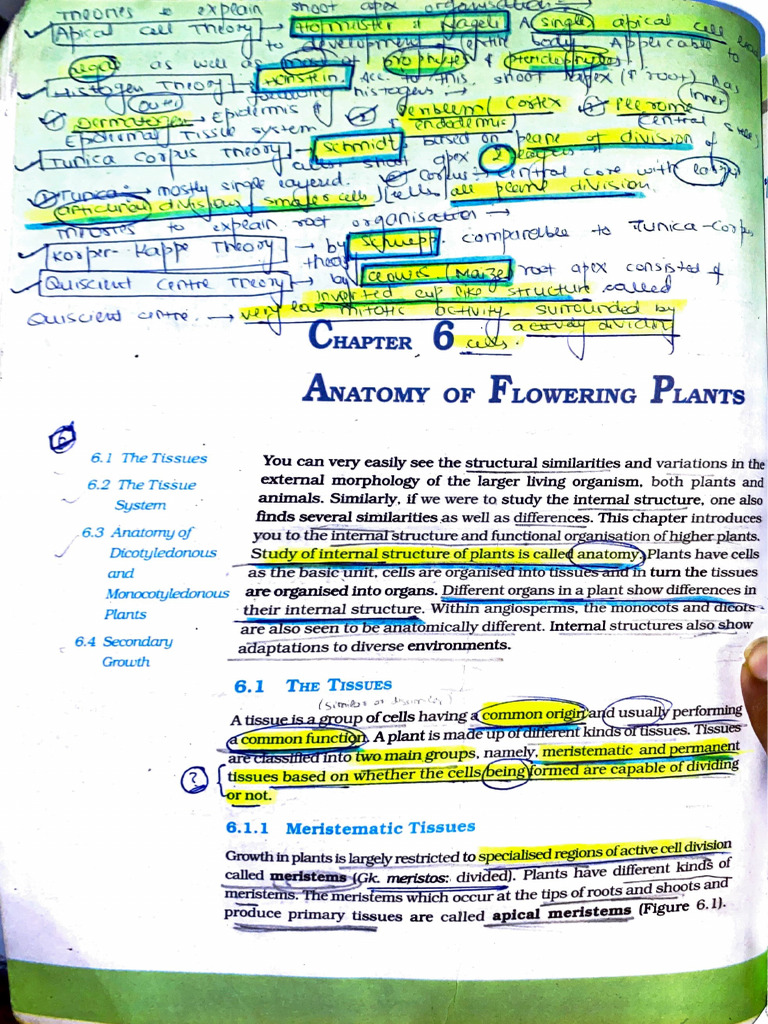 Theories to explain shoot apex organisation →
Apical Cell Theory → Hofmister & Nageli A single apical cell
to development of entire body. Applicable to
as well as most of &
Histogen Theory → Hanstein Acc. to this, shoot apex (& root) has
following histogens :-
outer inner
① Dermatogen → Epidermis & ② Periblem (Cortex ③ Plerome
Epidermal Tissue system endodermis central
Tunica Corpus Theory → Schmidt based on plane of division of
cells shoot apex 2 regions →
① Tunica → mostly single layered. ② Corpus → Central core with large
anticlinal divisions smaller cells cells all plane division.
Theories to explain root organisation →
Korper-Kappe Theory → by Schuepp. comparable to Tunica-Corpus
theory
Quiscient Centre Theory → by (Maize) root apex consisted of
inverted cup like structure called
Quiscient centre. → very low mitotic activity surrounded by
actively dividing
cells.
CHAPTER 6
ANATOMY OF FLOWERING PLANTS
6
6.1 The Tissues
6.2 The Tissue
System
6.3 Anatomy of
Dicotyledonous
and
Monocotyledonous
Plants
6.4 Secondary
Growth
You can very easily see the structural similarities and variations in the
external morphology of the larger living organism, both plants and
animals. Similarly, if we were to study the internal structure, one also
finds several similarities as well as differences. This chapter introduces
you to the internal structure and functional organisation of higher plants.
Study of internal structure of plants is called anatomy. Plants have cells
as the basic unit, cells are organised into tissues and in turn the tissues
are organised into organs. Different organs in a plant show differences in
their internal structure. Within angiosperms, the monocots and dicots
are also seen to be anatomically different. Internal structures also show
adaptations to diverse environments.
6.1 THE TISSUES
(similar or dissimilar)
A tissue is a group of cells having a common origin and usually performing
a common function. A plant is made up of different kinds of tissues. Tissues
are classified into two main groups, namely, meristematic and permanent
? tissues based on whether the cells being formed are capable of dividing
or not.
6.1.1 Meristematic Tissues
Growth in plants is largely restricted to specialised regions of active cell division
called meristems (Gk. meristos: divided). Plants have different kinds of
meristems. The meristems which occur at the tips of roots and shoots and
produce primary tissues are called apical meristems (Figure 6.1).